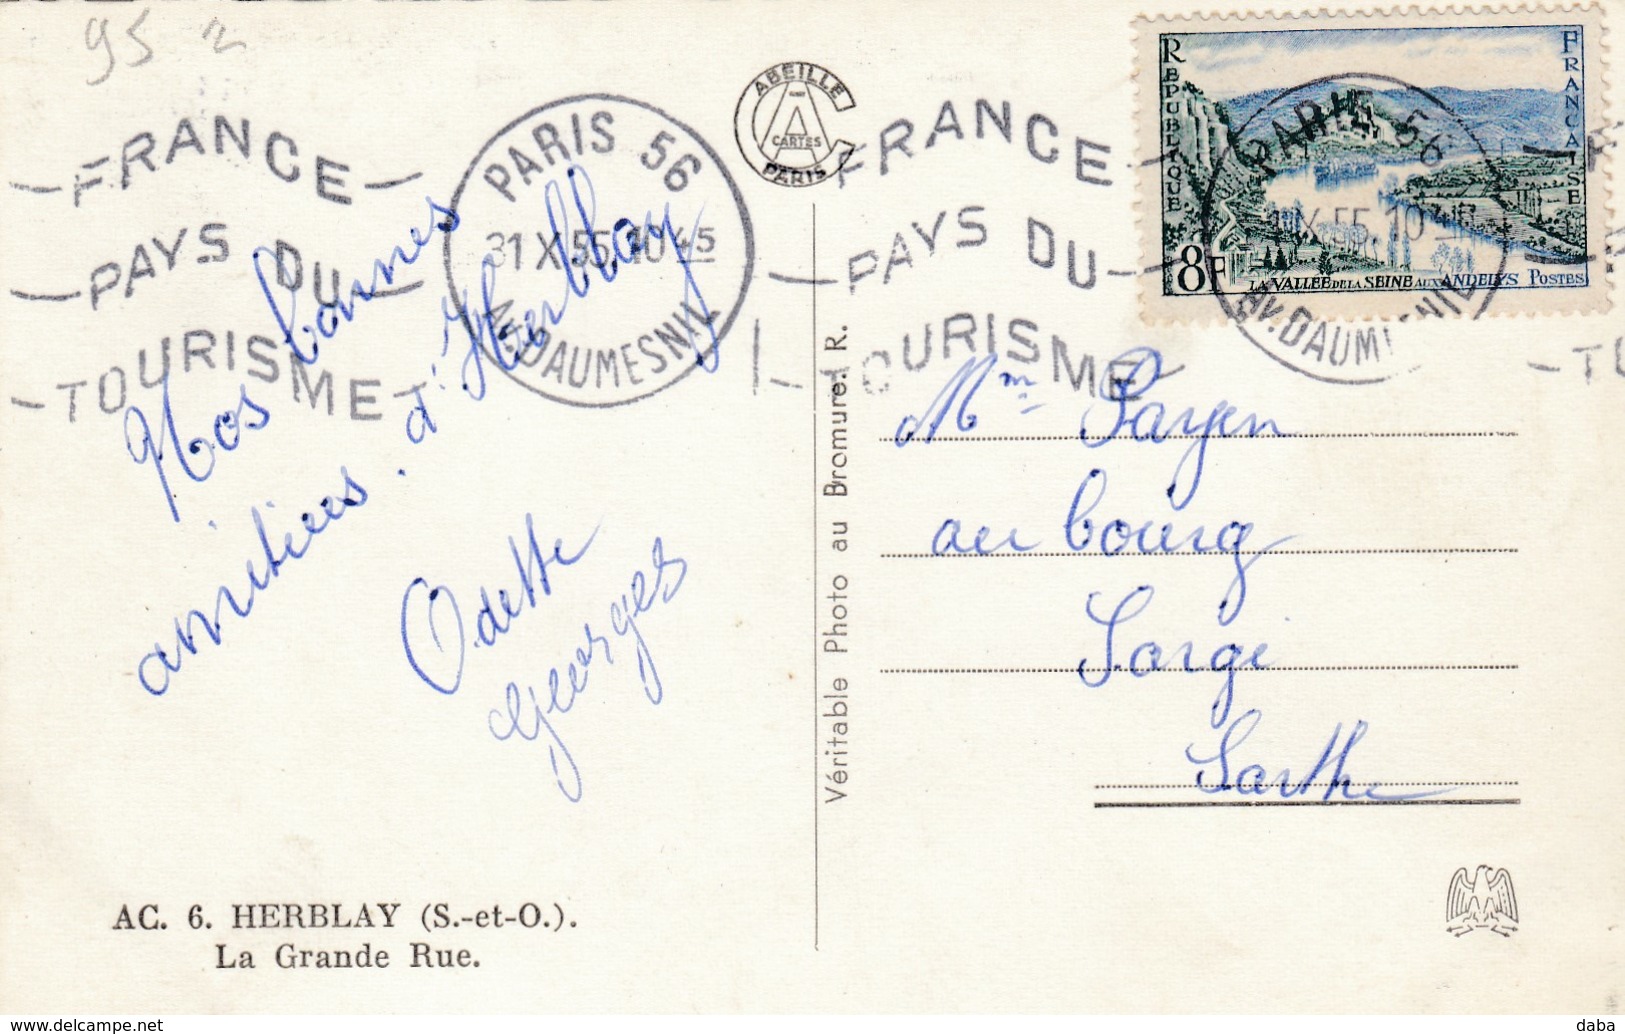 95
ABEILLE
CARTES
PARIS
FRANCE
PAYS DU
TOURISME
PARIS 56
31 X 55 10 45
AV. DAUMESNIL
FRANCE
PAYS DU
TOURISME
REPUBLIQUE
FRANCAISE
8F
LA VALLEE DE LA SEINE AUX ANDELYS POSTES
PARIS 56
X.55.10
AV. DAUMESNIL
Nos bonnes
amitiées. d'Herblay
Odette
Georges
Véritable Photo au Bromure. R.
Mme Payen
au bourg
Sargé
Sarthe
AC. 6. HERBLAY (S.-et-O.).
La Grande Rue.
www.delcampe.net
daba